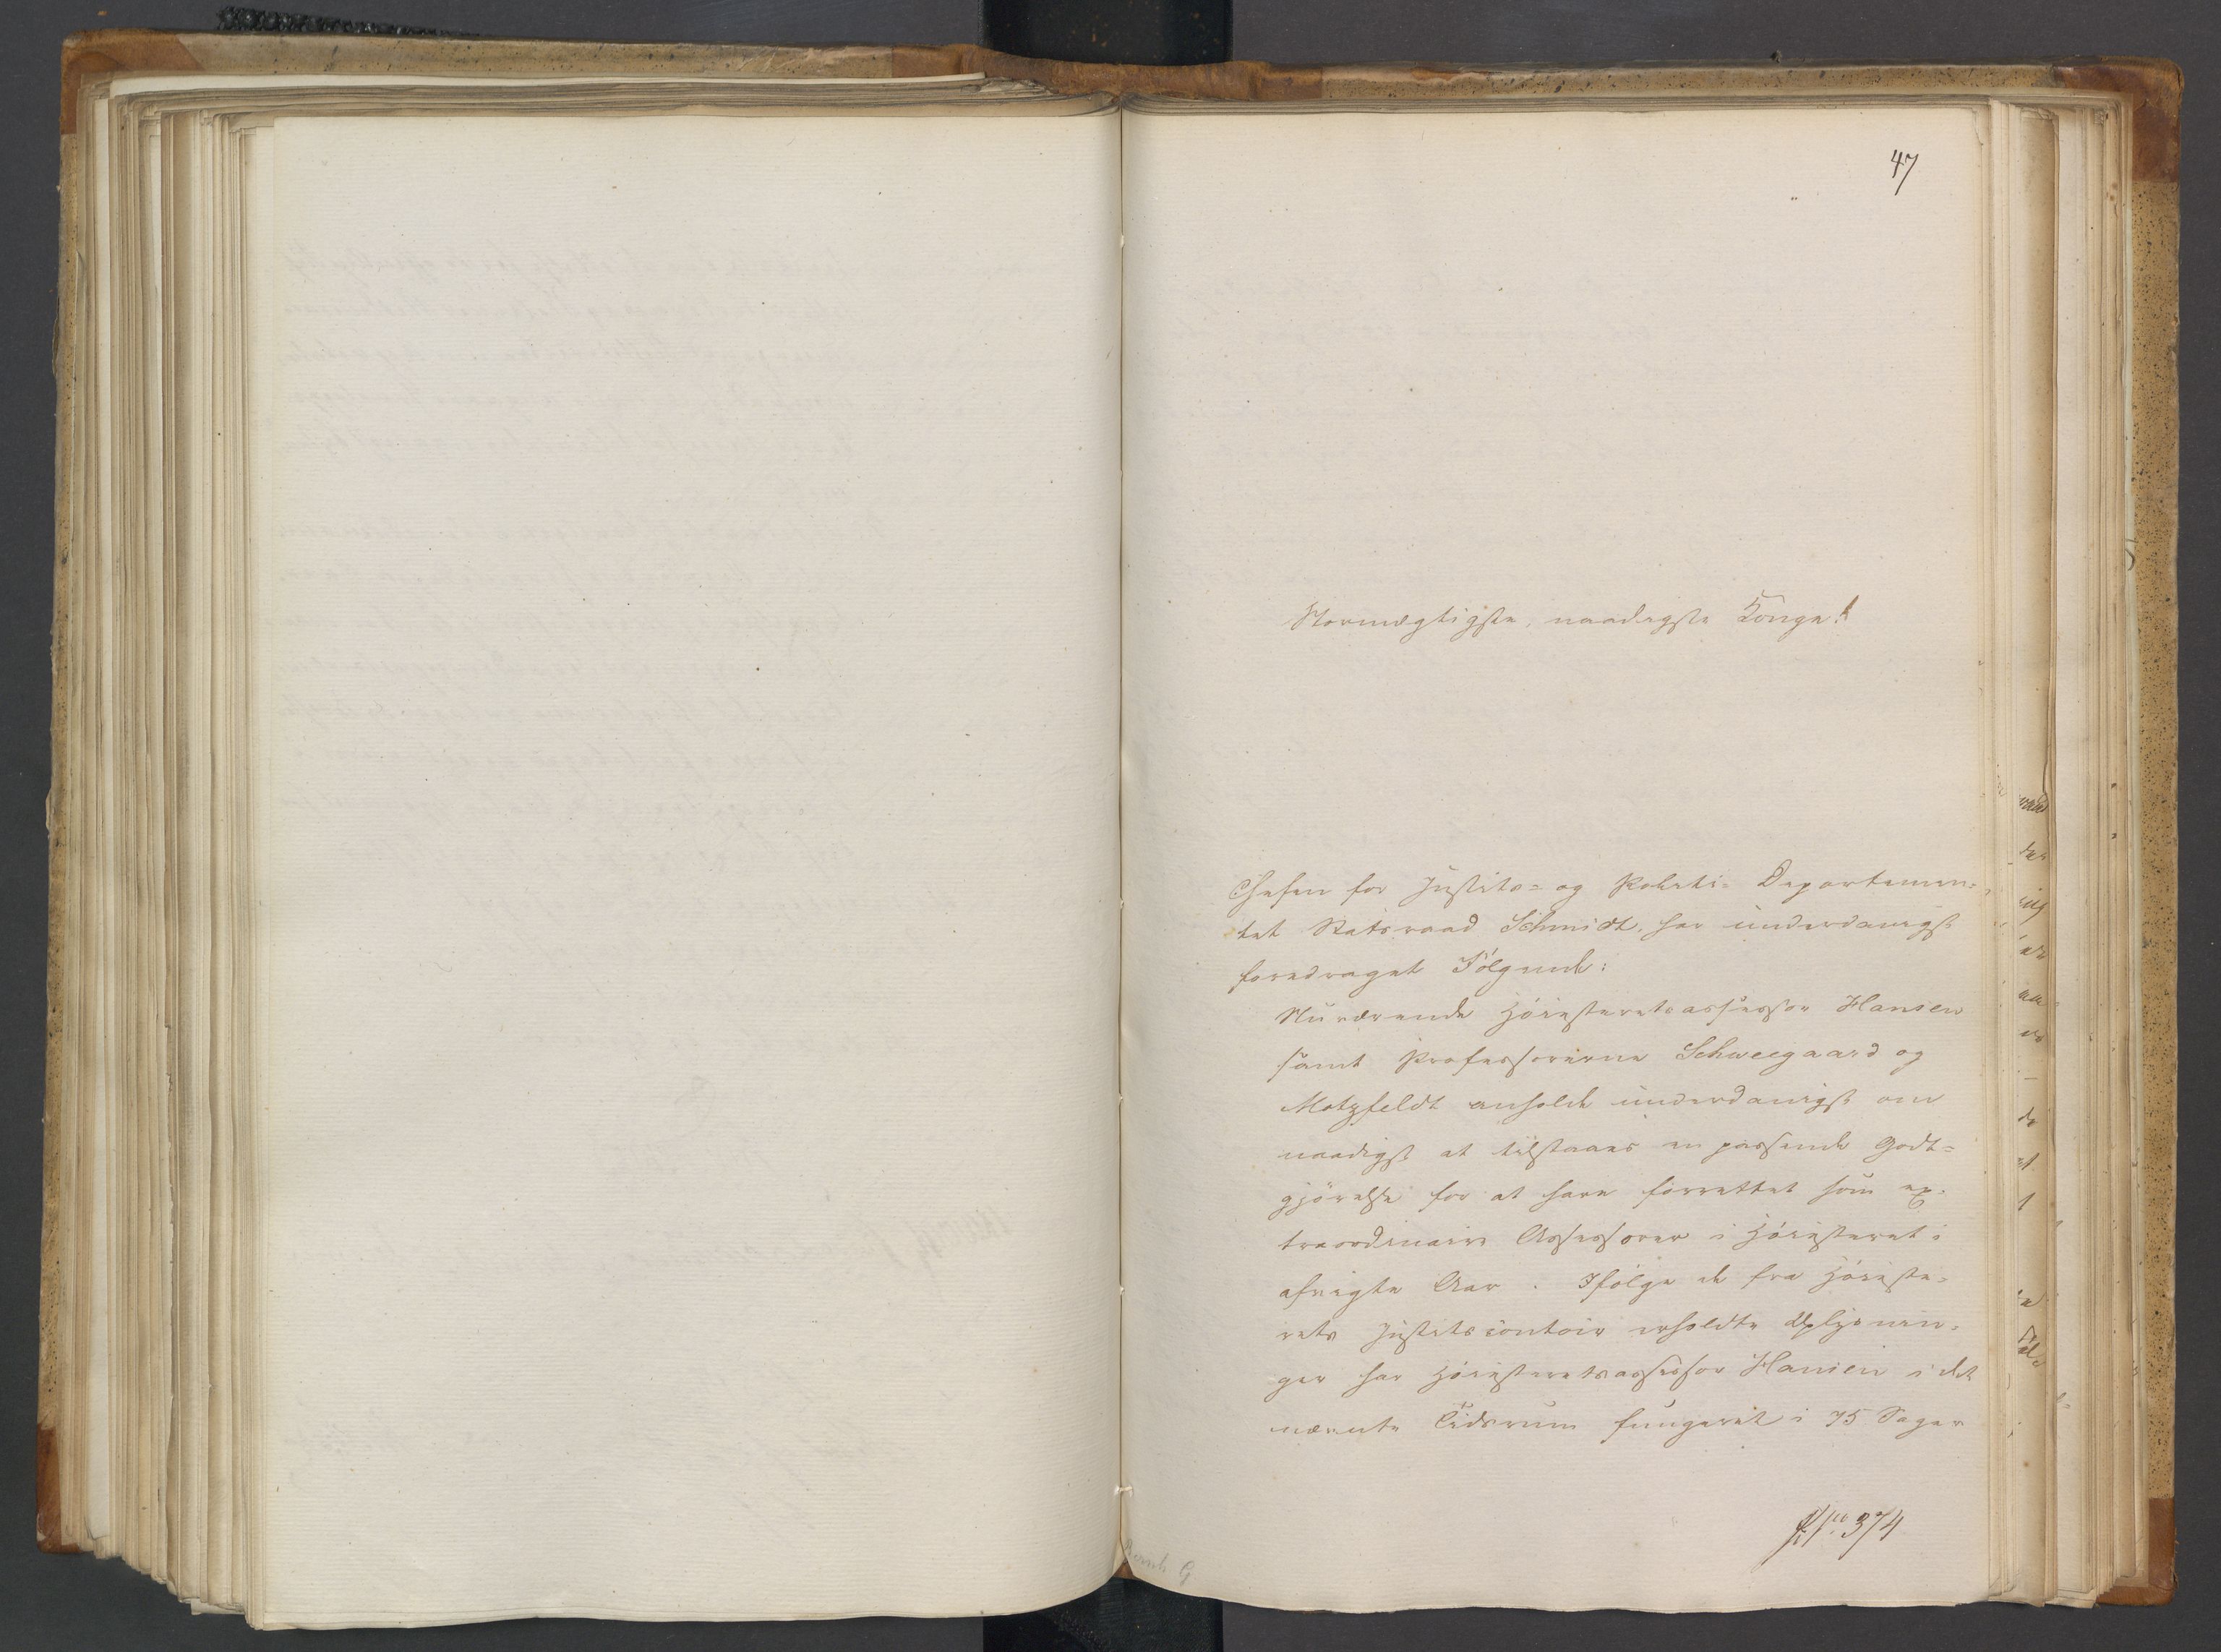 47
Stormægtigste, naadigste Konge!
Chefen for Justits= og Politi= Departemen=
tet Statsraad Schmidt, har underdanigst
foredraget Følgende:
Nuværende Höiesteretsassessor Hansen
samt Professorerne Schweegaard og
Motzfeldt anholde underdanigst om
naadigst at tilstaaes en passende Godt=
gjörelse for at have forrettet som ex=
traordinaire Assessorer i Höiesteret i
afvigte Aar. Ifölge de fra Höieste=
rets Justitscontoir erholdte Oplysnin=
ger har Höiesteretsassessor Hansen i det
nævnte Tidsrum fungeret i 75 Sager
No 374